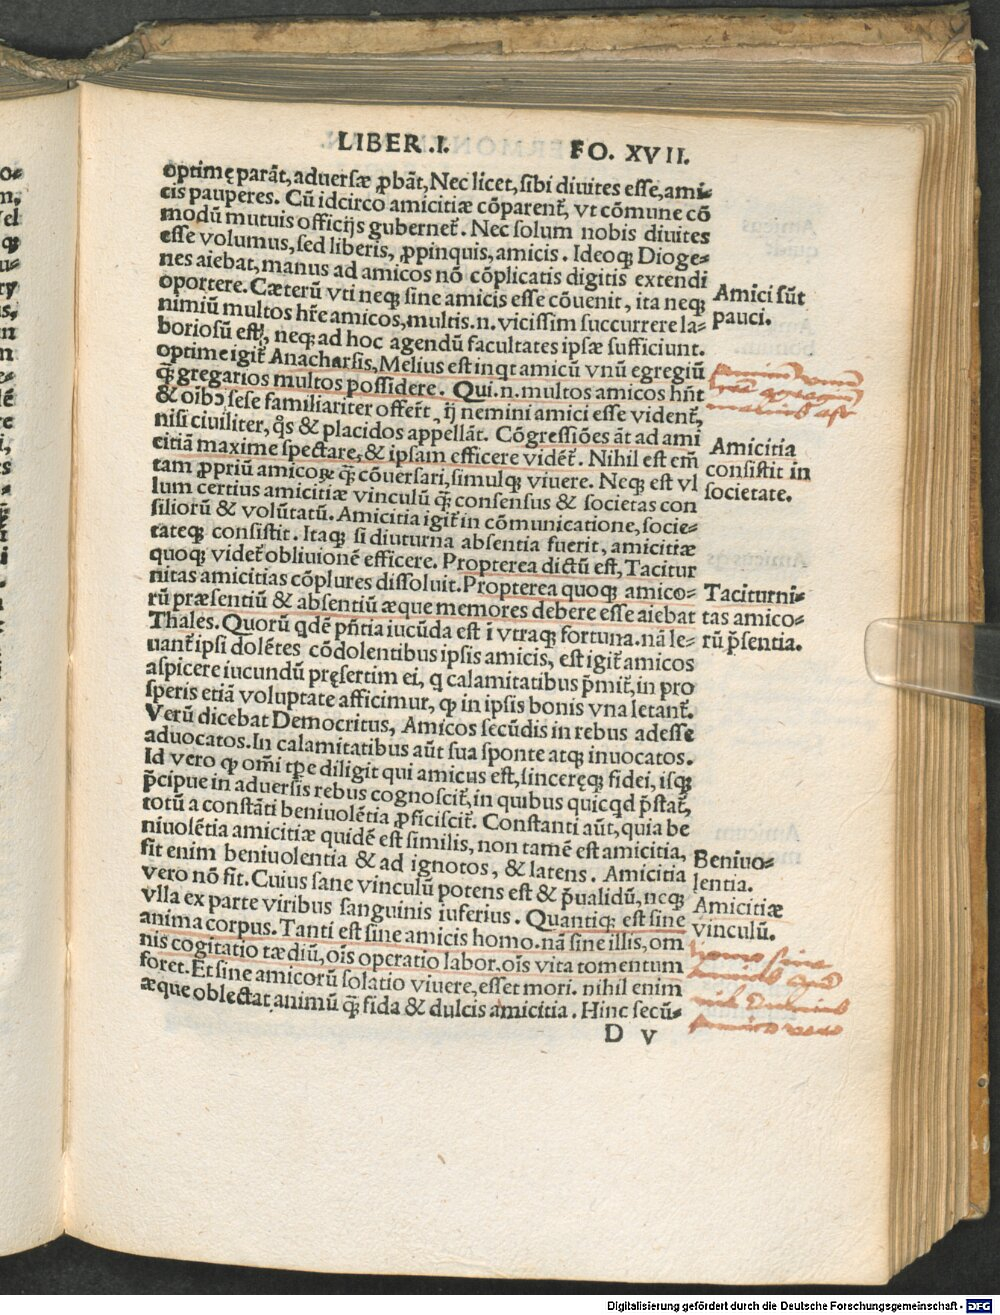 LIBER .I. FO. XVII.
optimę parāt, aduersæ ꝓbāt, Nec licet, sibi diuites esse, ami-
cis pauperes. Cū idcirco amicitiæ cōparent᷑, vt cōmune cō
modū mutuis officijs gubernet᷑. Nec solum nobis diuites
esse volumus, sed liberis, ꝓpinquis, amicis. Ideoqꝫ Dioge-
nes aiebat, manus ad amicos nō cōplicatis digitis extendi
oportere. Cæterū vti neqꝫ sine amicis esse cōuenit, ita neqꝫ
nimiū multos hr̄e amicos, multis .n. vicissim succurrere la-
boriosū est, neqꝫ ad hoc agendū facultates ipsæ sufficiunt.
optime igit᷑ Anacharsis, Melius est inqt amicū vnū egregiū
q̄ꝫ gregarios multos possidere. Qui .n. multos amicos hn̄t
& oībꝰ sese familiariter offert᷑, ij nemini amici esse vident᷑,
nisi ciuiliter, q̄s & placidos appellāt. Cōgressiōes āt ad ami
citiā maxime spectare, & ipsam efficere vidēt᷑. Nihil est em̄
tam ꝓpriū amicoꝝ q̄ꝫ cōuersari, simulqꝫ viuere. Neqꝫ est vl
lum certius amicitiæ vinculū q̄ꝫ consensus & societas con
siliorū & volūtatū. Amicitia igit᷑ in cōmunicatione, socie-
tateqꝫ consistit. Itaqꝫ si diuturna absentia fuerit, amicitiæ
quoqꝫ videt᷑ obliuionē efficere. Propterea dictū est, Tacitur
nitas amicitias cōplures dissoluit. Propterea quoqꝫ amico-
rū præsentiū & absentiū æque memores debere esse aiebat
Thales. Quorū qdē pn̄tia iucūda est ī vtraqꝫ fortuna. nā le-
uant᷑ ipsi dolētes cōdolentibus ipsis amicis, est igit᷑ amicos
aspicere iucundū pręsertim ei, q calamitatibus p̄mit᷑, in pro
speris etiā voluptate afficimur, ꝙ in ipsis bonis vna letant᷑.
Verū dicebat Democritus, Amicos secūdis in rebus adesse
aduocatos. In calamitatibus aūt sua sponte atqꝫ inuocatos.
Id vero ꝙ om̄i tp̄e diligit qui amicus est, sinceręqꝫ fidei, isqꝫ
p̄cipue in aduersis rebus cognoscit᷑, in quibus quicqd p̄stat᷑,
totū a constāti beniuolētia ꝓficiscit᷑. Constanti aūt, quia be
niuolētia amicitiæ quidē est similis, non tamē est amicitia,
fit enim beniuolentia & ad ignotos, & latens. Amicitia
vero nō fit. Cuius sane vinculū potens est & p̄ualidū, neqꝫ
vlla ex parte viribus sanguinis iuferius. Quantiqꝫ est sine
anima corpus. Tanti est sine amicis homo. nā sine illis, om
nis cogitatio tædiū, oīs operatio labor. oīs vita tomentum
foret. Et sine amicorū solatio viuere, esset mori. nihil enim
æque oblectat animū q̄ꝫ fida & dulcis amicitia. Hinc secū-
D v
Amici sūt
pauci.
Amicitia
consistit in
societate.
Taciturni-
tas amico-
rū p̄sentia.
Beniuo-
lentia.
Amicitiæ
vinculū.
Digitalisierung gefördert durch die Deutsche Forschungsgemeinschaft - DFG